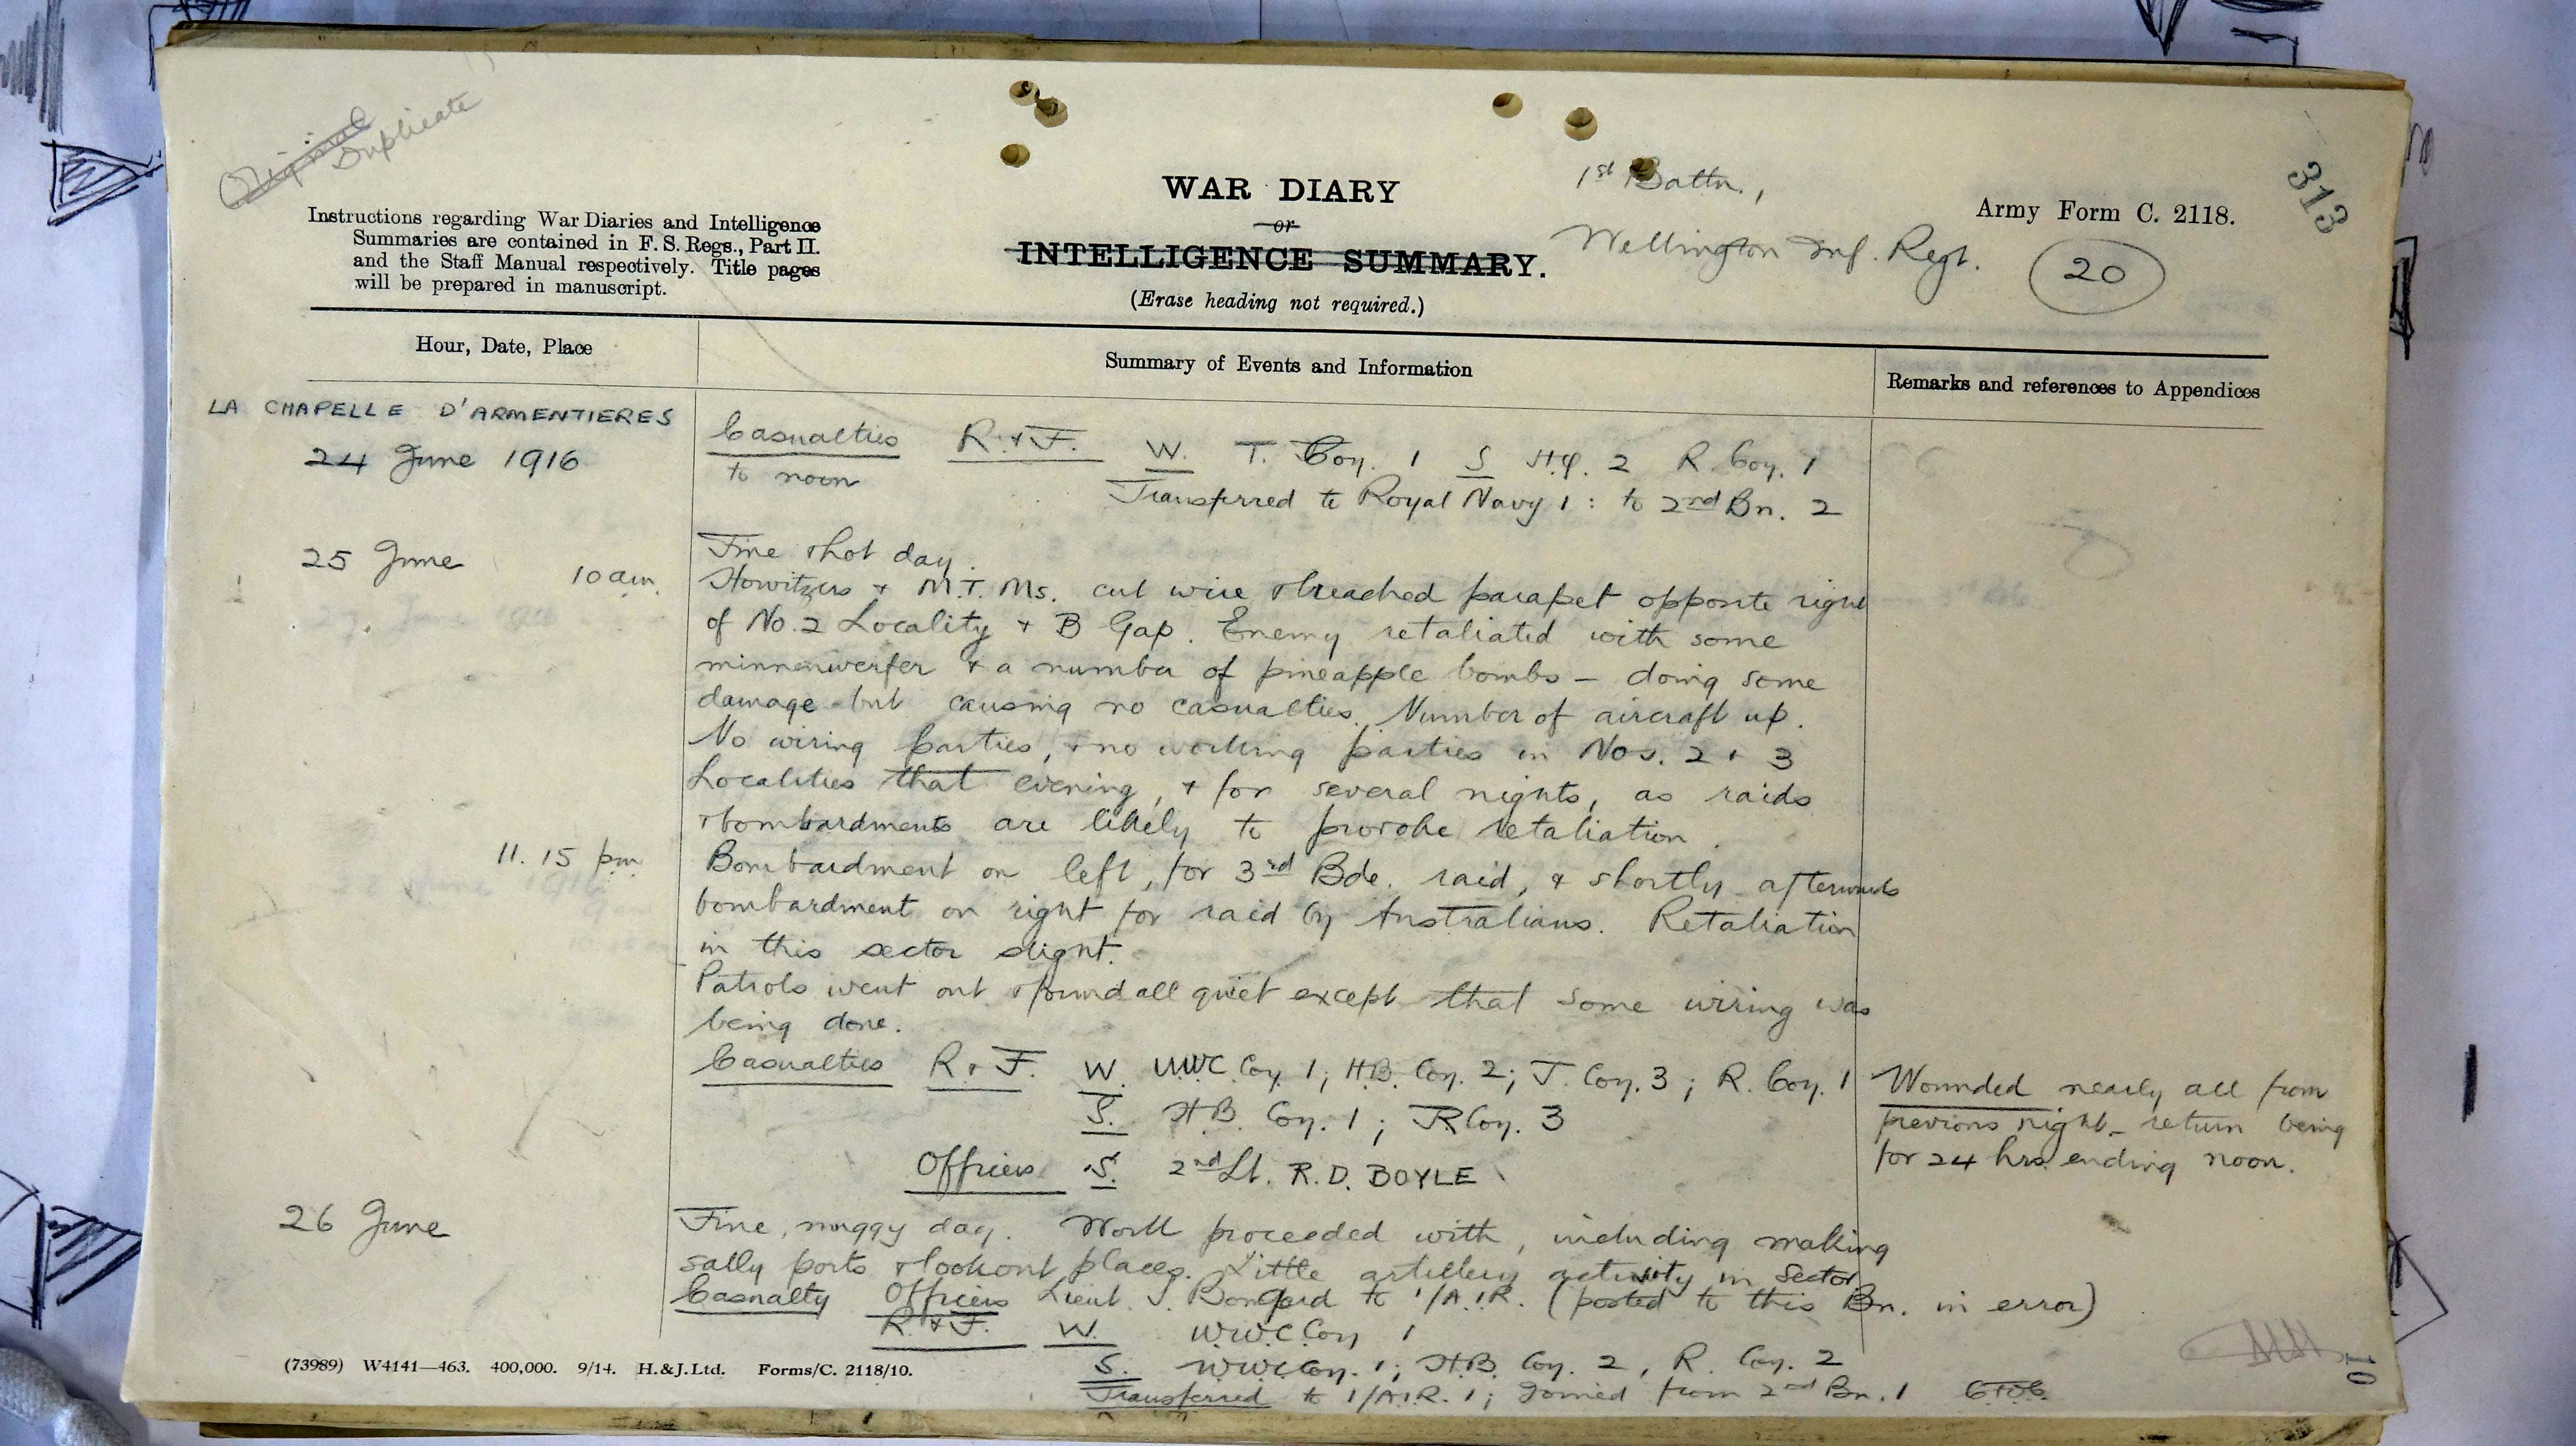 Original
Duplicate
313
Instructions regarding War Diaries and Intelligence
Summaries are contained in F. S. Regs., Part II.
and the Staff Manual respectively. Title pages
will be prepared in manuscript.
WAR DIARY
or
INTELLIGENCE SUMMARY.
(Erase heading not required.)
1st Battn.,
Wellington Inf. Regt.
Army Form C. 2118.
20
Hour, Date, Place
Summary of Events and Information
Remarks and references to Appendices
LA CHAPELLE D'ARMENTIERES
24 June 1916
Casualties R. & F. W. T. Coy. 1 S H.Q. 2 R. Coy. 1
to noon
Transferred to Royal Navy 1 : to 2nd Bn. 2
25 June
Fine & hot day.
10 am.
Howitzers & M.T. Ms. cut wire & breached parapet opposite right
of No. 2 Locality & B Gap. Enemy retaliated with some
minnenwerfer & a number of pineapple bombs — doing some
damage but causing no casualties. Number of aircraft up.
No wiring parties, & no working parties in Nos. 2 & 3
Localities that evening, & for several nights, as raids
& bombardments are likely to provoke retaliation.
11. 15 pm.
Bombardment on left, for 3rd Bde. raid, & shortly afterwards
bombardment on right for raid by Australians. Retaliation
in this sector slight.
Patrols went out & found all quiet except that some wiring was
being done.
Casualties R. & F. W. WWC Coy. 1; H.B. Coy. 2; T. Coy. 3; R. Coy. 1
S. H.B. Coy. 1; R Coy. 3
Officers S. 2nd Lt. R. D. BOYLE
Wounded nearly all from
previous night – return being
for 24 hrs. ending noon.
26 June
Fine, muggy day. Work proceeded with, including making
sally ports & lookout places. Little artillery activity in Sector
Casualty Officers Lieut. J. to 1/A.I.R. (posted to this Bn. in error)
R. & F. W. W.W.C Coy 1
S. WWC Coy. 1; H.B. Coy. 2, R. Coy. 2
Transferred to 1/A.I.R. 1; Joined from 2nd Bn. 1
(73989) W4141—463. 400,000. 9/14. H.&J.Ltd. Forms/C. 2118/10.
10